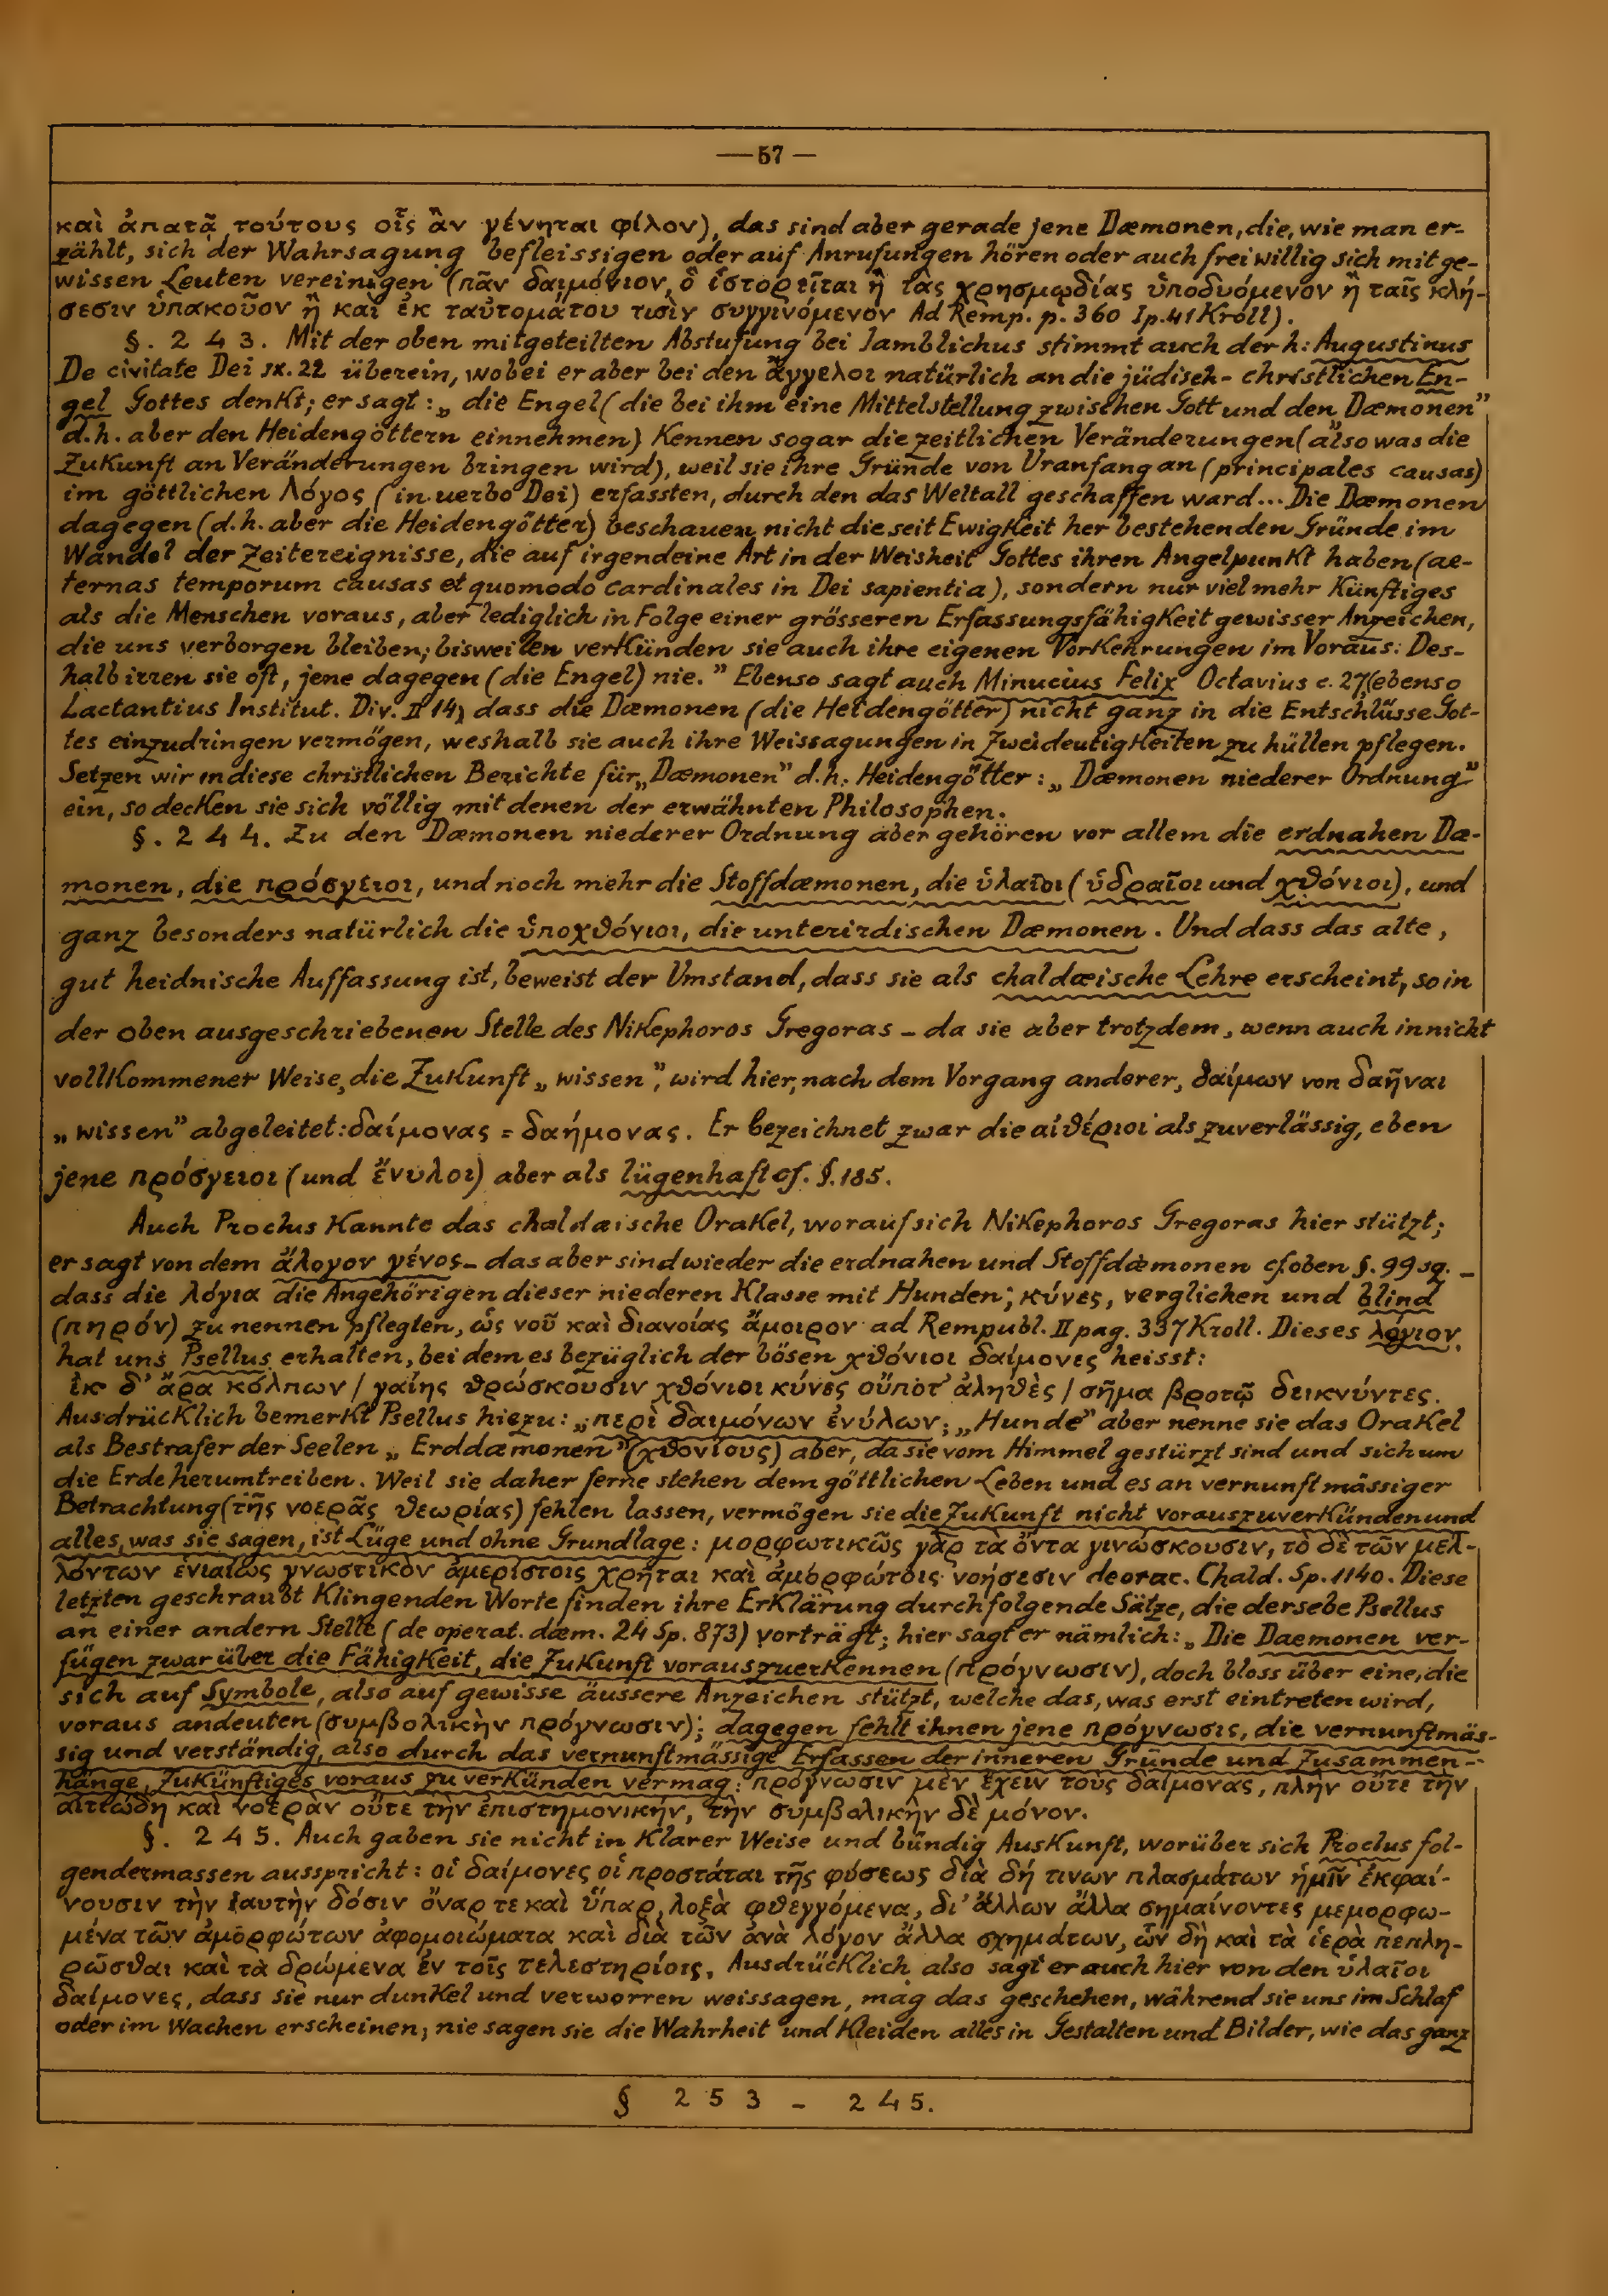 — 57 —
καὶ ἀπατᾷ τούτους οἷς ἂν γένηται φίλον), das sind aber gerade jene Dæmonen, die, wie man er-
zählt, sich der Wahrsagung befleissigen oder auf Anrufungen hören oder auch freiwillig sich mit ge-
wissen Leuten vereinigen (πᾶν δαιμόνιον, ὃ ἱστορεῖται ἢ τὰς χρησμῳδίας ὑποδυόμενον ἢ ταῖς κλή-
σεσιν ὑπακοῦον ἢ καὶ ἐκ ταὐτομάτου τισὶν συγγινόμενον Ad Remp. p. 360 I p. 41 Kroll).
§. 2 4 3. Mit der oben mitgeteilten Abstufung bei Jamblichus stimmt auch der h: Augustinus
De civitate Dei IX. 22 überein, wobei er aber bei den ἄγγελοι natürlich an die jüdisch-christlichen En-
gel Gottes denkt; er sagt: „ die Engel (die bei ihm eine Mittelstellung zwischen Gott und den „Dæmonen”
d.h. aber den Heidengöttern einnehmen) kennen sogar die zeitlichen Veränderungen (also was die
Zukunft an Veränderungen bringen wird), weil sie ihre Gründe von Uranfang an (principales causas)
im göttlichen λόγος (in uerbo Dei) erfassten, durch den das Weltall geschaffen ward... Die Dæmonen
dagegen (d.h. aber die Heidengötter) beschauen nicht die seit Ewigkeit her bestehenden Gründe im
Wandel der Zeitereignisse, die auf irgendeine Art in der Weisheit Gottes ihren Angelpunkt haben (ae-
ternas temporum causas et quomodo cardinales in Dei sapientia), sondern nur viel mehr Künftiges
als die Menschen voraus, aber lediglich in Folge einer grösseren Erfassungsfähigkeit gewisser Anzeichen,
die uns verborgen bleiben; bisweilen verkünden sie auch ihre eigenen Vorkehrungen im Voraus: Des-
halb irren sie oft, jene dagegen (die Engel) nie.” Ebenso sagt auch Minucius Felix Octavius c. 27 (ebenso
Lactantius Institut. Div. II 14) dass die Dæmonen (die Heidengötter) nicht ganz in die Entschlüsse Got-
tes einzudringen vermögen, weshalb sie auch ihre Weissagungen in Zweideutigkeiten zu hüllen pflegen.
Setzen wir in diese christlichen Berichte für „Dæmonen” d.h. Heidengötter: „ Dæmonen niederer Ordnung”
ein, so decken sie sich völlig mit denen der erwähnten Philosophen.
§. 2 4 4. Zu den Dæmonen niederer Ordnung aber gehören vor allem die erdnahen Dæ-
monen, die πρόσγειοι, und noch mehr die Stoffdæmonen, die ὑλαῖοι (ὑδραῖοι und χθόνιοι), und
ganz besonders natürlich die ὑποχθόνιοι, die unterirdischen Dæmonen. Und dass das alte,
gut heidnische Auffassung ist, beweist der Umstand, dass sie als chaldæische Lehre erscheint, so in
der oben ausgeschriebenen Stelle des Nikephoros Gregoras – da sie aber trotzdem, wenn auch in nicht
vollkommener Weise, die Zukunft „ wissen ”, wird hier, nach dem Vorgang anderer, δαίμων von δαῆναι
„ wissen” abgeleitet: δαίμονας = δαήμονας. Er bezeichnet zwar die αἰθέριοι als zuverlässig, eben
jene πρόσγειοι (und ἔνυλοι) aber als lügenhaft cf. §. 185.
Auch Proclus kannte das chaldæische Orakel, worauf sich Nikephoros Gregoras hier stützt;
er sagt von dem ἄλογον γένος – das aber sind wieder die erdnahen und Stoffdæmonen cf. oben §. 99 sq. –
dass die λόγια die Angehörigen dieser niederen Klasse mit Hunden, κύνες, verglichen und blind
(πηρόν) zu nennen pflegten, ὡς νοῦ καὶ διανοίας ἄμοιρον ad Rempubl. II pag. 337 Kroll. Dieses λόγιον
hat uns Psellus erhalten, bei dem es bezüglich der bösen χθόνιοι δαίμονες heisst:
ἐκ δ’ ἄρα κόλπων / γαίης θρώσκουσιν χθόνιοι κύνες οὔποτ’ ἀληθὲς / σῆμα βροτῷ δεικνύντες.
Ausdrücklich bemerkt Psellus hiezu: „περὶ δαιμόνων ἐνύλων; „Hunde” aber nenne sie das Orakel
als Bestrafer der Seelen „ Erddæmonen” (χθονίους) aber, da sie vom Himmel gestürzt sind und sich um
die Erde herumtreiben. Weil sie daher ferne stehen dem göttlichen Leben und es an vernunftmässiger
Betrachtung (τῆς νοερᾶς θεωρίας) fehlen lassen, vermögen sie die Zukunft nicht vorauszuverkünden und
alles, was sie sagen, ist Lüge und ohne Grundlage: μορφωτικῶς γὰρ τὰ ὄντα γινώσκουσιν, τὸ δὲ τῶν μελ-
λόντων ἑνιαίως γνωστικὸν ἀμερίστοις χρῆται καὶ ἀμορφώτοις νοήσεσιν de orac. Chald. Sp. 1140. Diese
letzten geschraubt klingenden Worte finden ihre Erklärung durch folgende Sätze, die dersebe Psellus
an einer andern Stelle (de operat. dæm. 24 Sp. 873) vorträgt; hier sagt er nämlich: „ Die Daemonen ver-
fügen zwar über die Fähigkeit, die Zukunft vorauszuerkennen (πρόγνωσιν), doch bloss über eine, die
sich auf Symbole, also auf gewisse äussere Anzeichen stützt, welche das, was erst eintreten wird,
voraus andeuten (συμβολικὴν πρόγνωσιν); dagegen fehlt ihnen jene πρόγνωσις, die vernunftmäs-
sig und verständig, also durch das vernunftmässige Erfassen der inneren Gründe und Zusammen-
hänge, Zukünftiges voraus zu verkünden vermag: πρόγνωσιν μὲν ἔχειν τοὺς δαίμονας, πλὴν οὔτε τὴν
αἰτιώδη καὶ νοερὰν οὔτε τὴν ἐπιστημονικήν, τὴν συμβολικὴν δὲ μόνον.
§. 2 4 5. Auch gaben sie nicht in klarer Weise und bündig Auskunft, worüber sich Proclus fol-
gendermassen ausspricht: οἱ δαίμονες οἱ προστάται τῆς φύσεως διὰ δή τινων πλασμάτων ἡμῖν ἐκφαί-
νουσιν τὴν ἑαυτὴν δόσιν ὄναρ τε καὶ ὕπαρ, λοξὰ φθεγγόμενα, δι’ ἄλλων ἄλλα σημαίνοντες μεμορφω-
μένα τῶν ἀμορφώτων ἀφομοιώματα καὶ διὰ τῶν ἀνὰ λόγον ἄλλα σχημάτων, ὧν δὴ καὶ τὰ ἱερὰ πεπλη-
ρῶσθαι καὶ τὰ δρώμενα ἐν τοῖς τελεστηρίοις. Ausdrücklich also sagt er auch hier von den ὑλαῖοι
δαίμονες, dass sie nur dunkel und verworren weissagen, mag das geschehen, während sie uns im Schlaf
oder im Wachen erscheinen; nie sagen sie die Wahrheit und kleiden alles in Gestalten und Bilder, wie das ganz
§ 2 5 3 – 2 4 5.